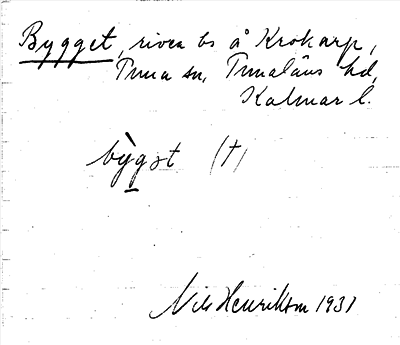 Bygget, riven bs å Krokarp,
Tuna sn, Tunaläns hd,
Kalmar l.
bỳgət (†)
Nils Henrikson 1931